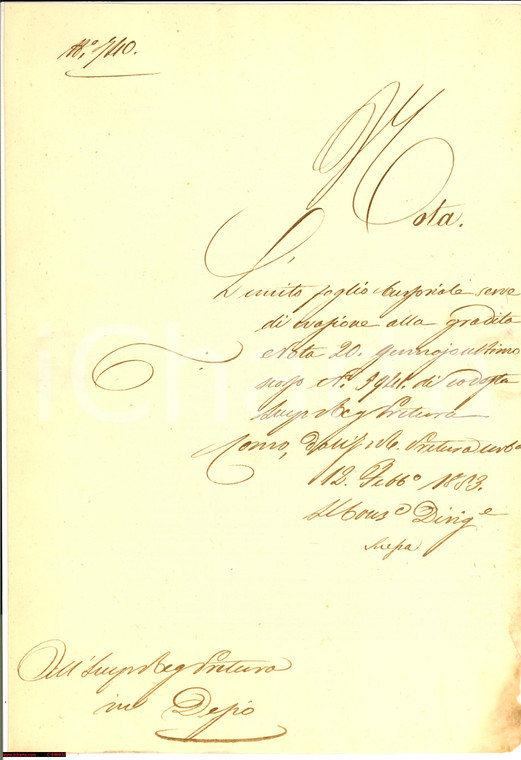 N.° 1740.
Nota.
L'unito foglio cursoriale serve
di evasione alla gradita
Nota 20. gennajo ultimo
N.° di codesta
Imp Reg Pretura
Como, Dall'I. R. Pretura urb.a
12. Febb.o 1853.
Il Cons.e Dirig.e
All'Imp Reg Pretura
in Desio